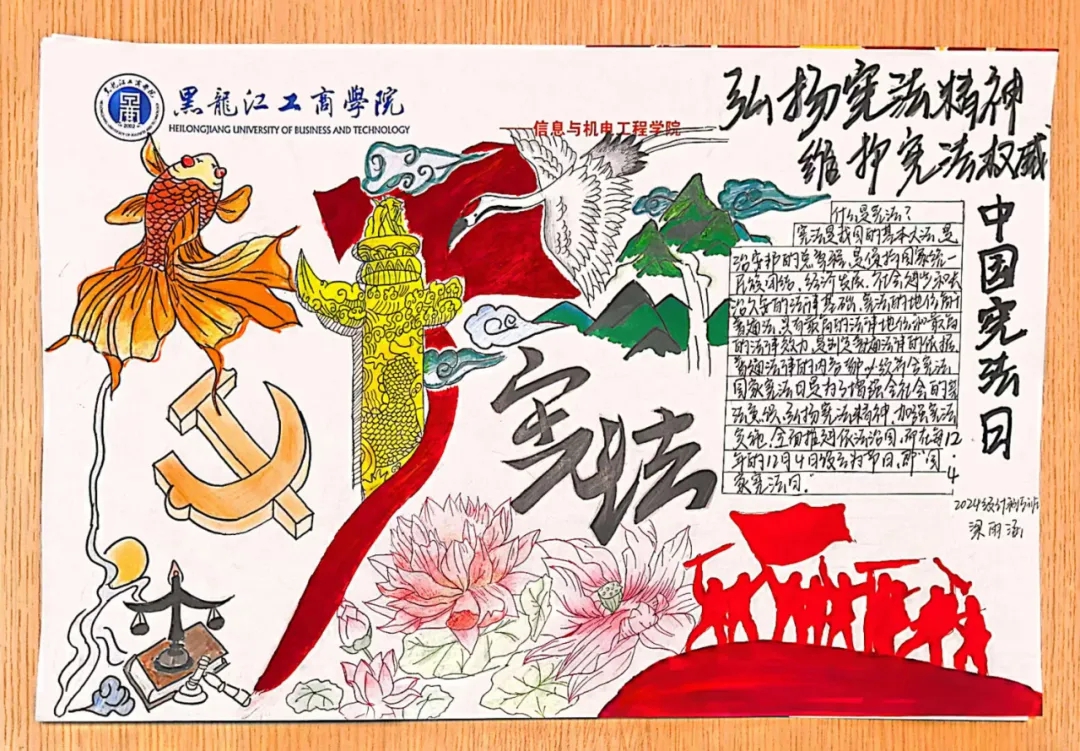 黑龍江工商學院
HEILONGJIANG UNIVERSITY OF BUSINESS AND TECHNOLOGY
信息与机电工程学院
弘扬宪法精神
维护宪法权威
中国宪法日
宪法
什么是宪法?
宪法是我国的基本大法,是
治安邦的总章程,总
民族团结,经济发展,社会
治久安的法律基础,宪法的地位高于
普通法,具有最高的法律地位和最高
的法律效力,是制定普通法律的依据,
普通法律的内容都必须符合宪法,
国家宪法日是为了增强全社会的宪
法意识,弘扬宪法精神,加强宪法
实施,全面推进依法治国,所在每
年的12月4日设立为节日,即"国
家宪法日."
12·4
2024级
梁雨涵